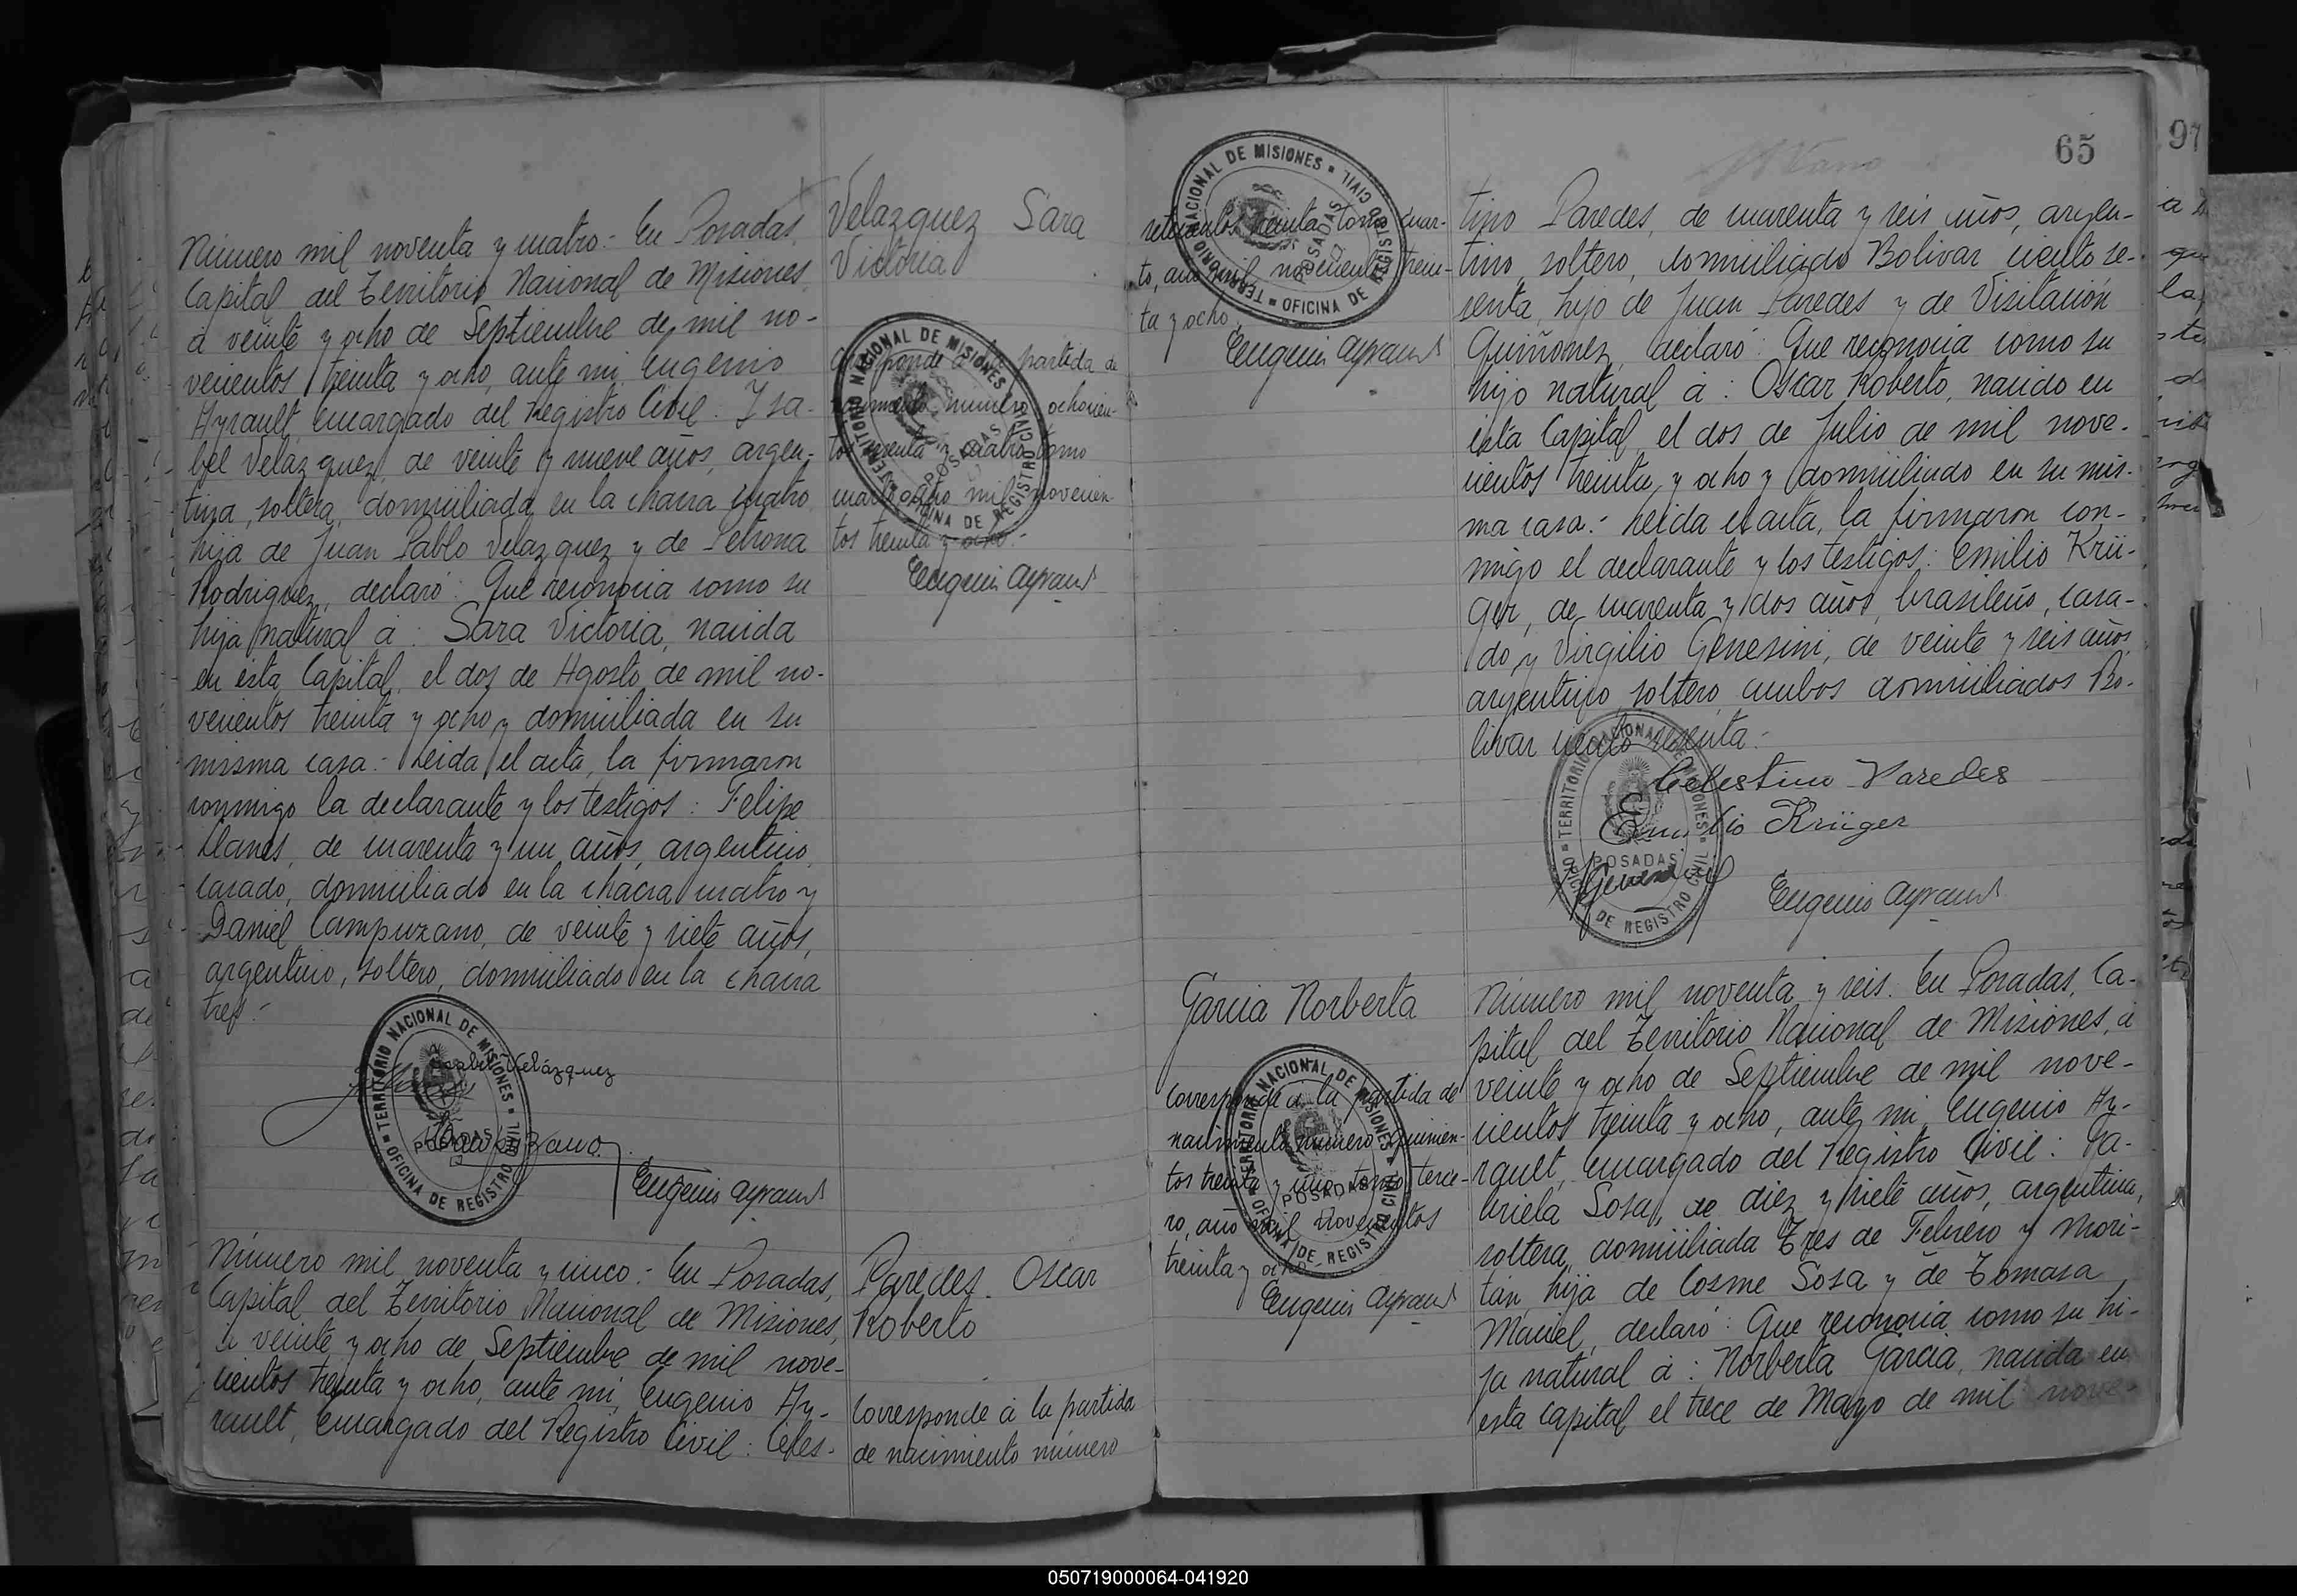 Número mil noventa y cuatro.- En Posadas,
Capital del Territorio Nacional de Misiones,
á veinte y ocho de Septiembre de mil no-
vecientos treinta y ocho, ante mí, Eugenio
Ayrault, Encargado del Registro Civil: Isa-
bel Velazquez, de veinte y nueve años, argen-
tina, soltera, domiciliada en la chacra cuatro
hija de Juan Pablo Velazquez y de Petrona
Rodriguez, declaró: Que reconocia como su
hija natural á: Sara Victoria, nacida
en ésta Capital, el dos de Agosto de mil no-
vecientos treinta y ocho y domiciliada en su
misma casa.- Leida el acta, la firmaron
conmigo la declarante y los testigos: Felipe
Llanes, de cuarenta y un años, argentino,
casado, domiciliado en la chácra cuatro y
Daniel Campuzano, de veinte y siete años,
argentino, soltero, domiciliado en la chacra
tres.-
Isabel Velázquez
Campuzano.
Eugenio Ayrault
TERRITORIO NACIONAL DE MISIONES
POSADAS
OFICINA DE REGISTRO CIVIL
Velazquez Sara
Victoria
Corresponde á la partida de
nacimiento número ochocien-
tos treinta y cuatro tomo
cuarto año mil novecien-
tos treinta y ocho.-
Eugenio Ayrault
TERRITORIO NACIONAL DE MISIONES
POSADAS
OFICINA DE REGISTRO CIVIL
Número mil noventa y cinco.- En Posadas,
Capital del Territorio Nacional de Misiones,
á veinte y ocho de Septiembre de mil nove-
cientos treinta y ocho, ante mí, Eugenio Ay-
rault, Encargado del Registro Civil: Celes-
Paredes. Oscar
Roberto
Corresponde á la partida
de nacimiento número
65
97
setecientos treinta tomo cuar-
to, año mil novecientos trein-
ta y ocho.
Eugenio Ayrault
TERRITORIO NACIONAL DE MISIONES
POSADAS
OFICINA DE REGISTRO CIVIL
tino Paredes, de cuarenta y seis años, argen-
tino, soltero, domiciliado Bolivar ciento se-
senta, hijo de Juan Paredes y de Visitación
Quiñonez, declaró: Que reconocia como su
hijo natural á: Oscar Roberto, nacido en
ésta Capital, el dos de Julio de mil nove-
cientos treinta y ocho y domiciliado en su mis-
ma casa.- Leida el acta, la firmaron con-
migo el declarante y los testigos: Emilio Krü-
ger, de cuarenta y dos años, brasileño, casa-
do y Virgilio Genesini, de veinte y seis años,
argentino, soltero, ambos domiciliados Bo-
livar ciento sesenta.-
Celestino Paredes
Emilio Krüger
Eugenio Ayrault
TERRITORIO NACIONAL DE MISIONES
POSADAS
OFICINA DE REGISTRO CIVIL
Garcia Norberta
Corresponde á la partida de
nacimiento número quinien-
tos treinta y uno tomo terce-
ro, año mil novecientos
treinta y ocho
Eugenio Ayrault
TERRITORIO NACIONAL DE MISIONES
POSADAS
OFICINA DE REGISTRO CIVIL
Número mil noventa y seis. En Posadas, Ca-
pital del Territorio Nacional de Misiones, á
veinte y ocho de Septiembre de mil nove-
cientos treinta y ocho, ante mí, Eugenio Ay-
rault, Encargado del Registro Civil: Ga-
briela Sosa, de diez y siete años, argentina,
soltera, domiciliada Tres de Febrero y Mori-
tán, hija de Cosme Sosa y de Tomasa
Maciel, declaró: Que reconocia como su hi-
ja natural á: Norberta Garcia, nacida en
esta Capital el trece de Mayo de mil nove-
050719000064-041920